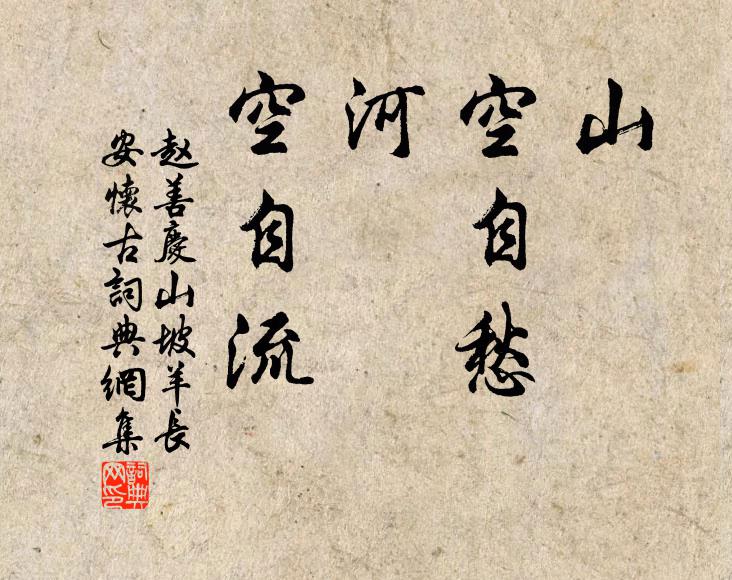 山
空自愁
河
空自流
赵善慶山坡羊長
安懷古詞典網集
詞典
网印